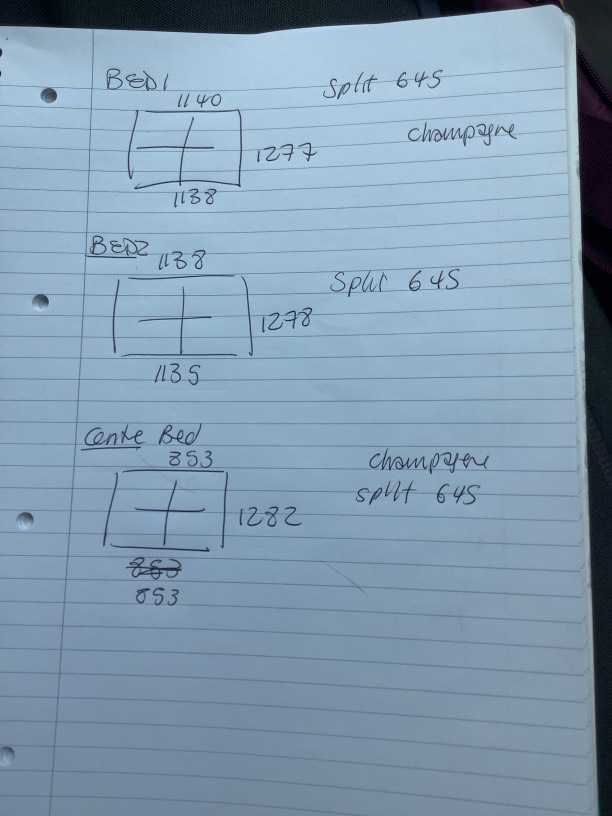 BED1
Split 645
1140
champagne
1277
1138
BED2
1138
Split 645
1278
1135
Centre Bed
853
champagne
split 645
1282
853
853